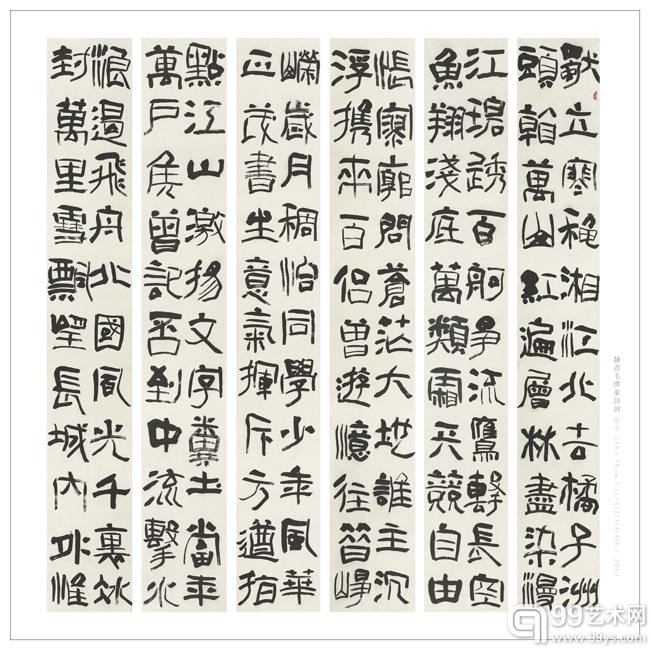 獨立寒穐湘江北去橘子洲
頭看萬山紅遍層林盡染漫
江碧透百舸爭流鷹擊長空
魚翔淺底萬類霜天競自由
悵寥廓問蒼茫大地誰主沉
浮携來百侣曾遊憶往昔崢
嶸歲月稠恰同學少年風華
正茂書生意氣揮斥方遒指
點江山激揚文字糞土當年
萬户侯曾記否到中流擊水
浪遏飛舟北國風光千裏冰
封萬里雪飄望長城内外惟
隸書毛澤東詩詞 紙本
99艺术网
www.99ys.com